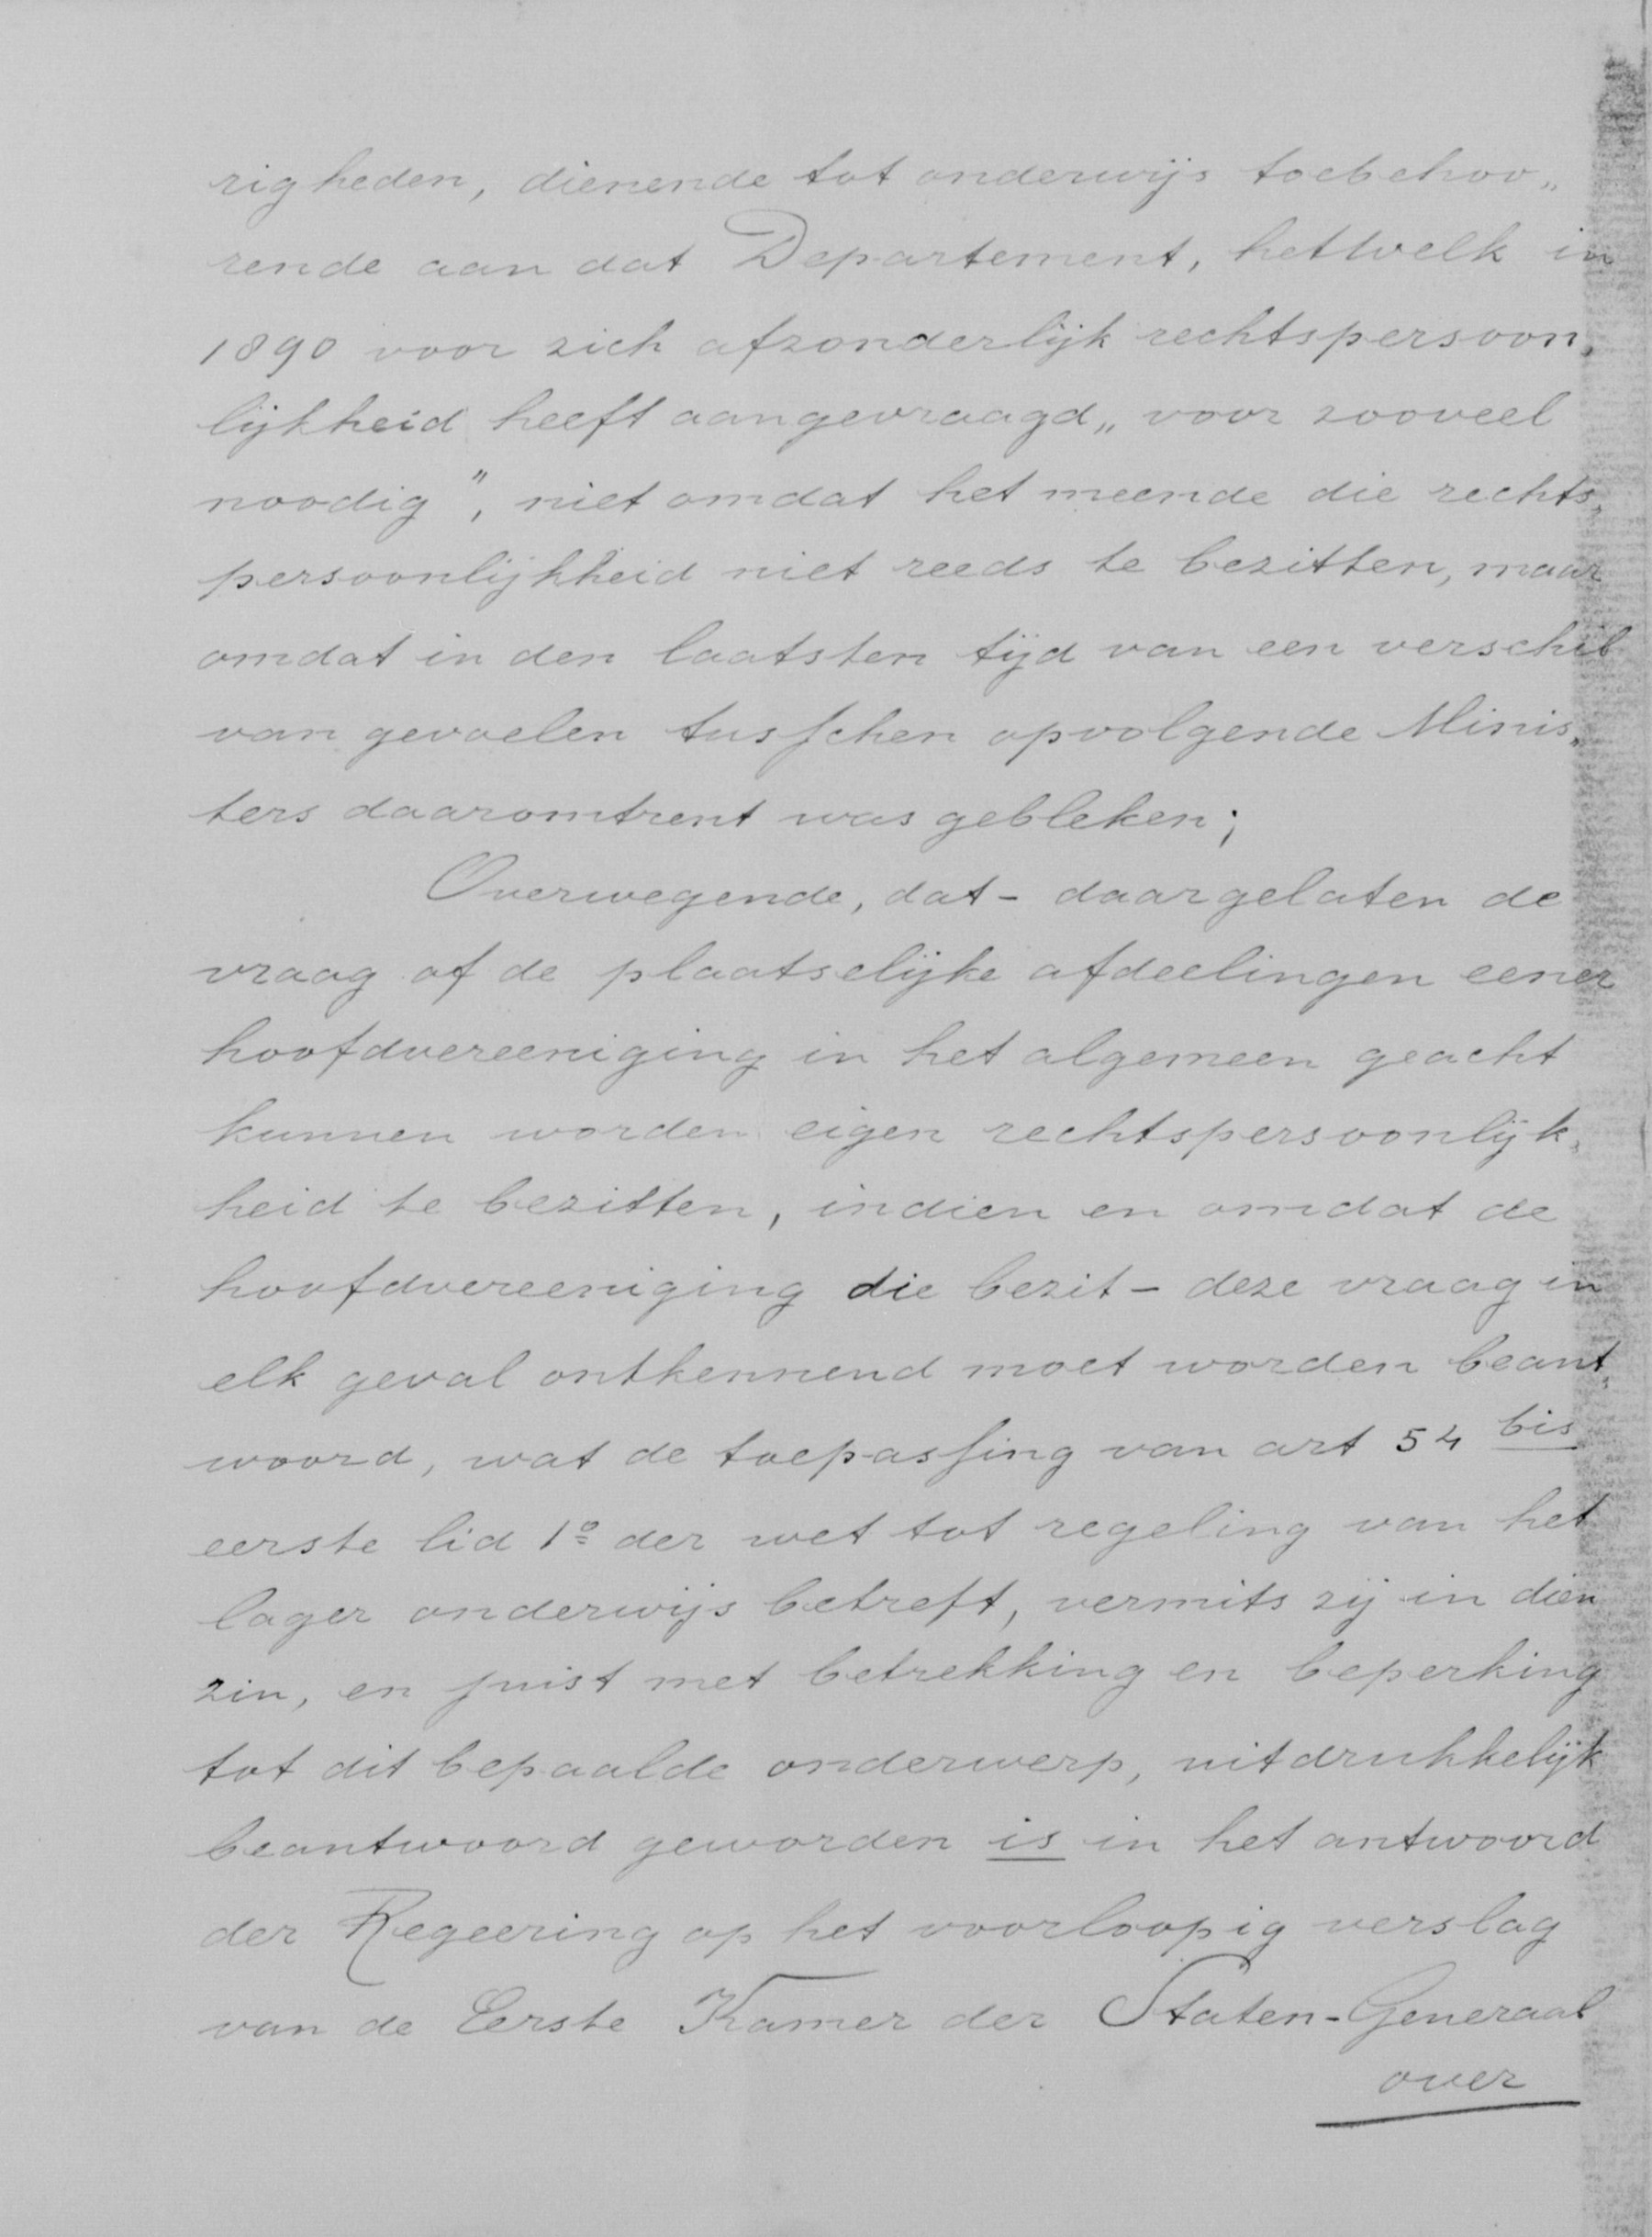 righeden, dienende tot onderwijs toebehoo„
rende aan dat Departement, hetwelk in
1890 voor zich afzonderlijk rechtspersoon„
lijkheid heeft aangevraagd „voor zooveel
noodig”, niet omdat het meende die rechts„
persoonlijkheid niet reeds te bezitten, maar
omdat in den laatsten tijd van een verschil
van gevoelen tusschen opvolgende Minis„
ters daaromtrent was gebleken;
Overwegende, dat - daargelaten de
vraag of de plaatselijke afdeelingen eener
hoofdvereeniging in het algemeen geacht
kunnen worden eigen rechtspersoonlijk„
heid te bezitten, indien en omdat de
hoofdvereeniging die bezit - deze vraag in
elk geval ontkennend moet worden beant„
woord, wat de toepassing van art 54 bis
eerste lid 1º der wet tot regeling van het
lager onderwijs betreft, vermits zij in dien
zin, en juist met betrekking en beperking
tot dit bepaalde onderwerp, uitdrukkelijk
beantwoord geworden is in het antwoord
der Regeering op het voorloopig verslag
van de Eerste Kamer der Staten-Generaal
over